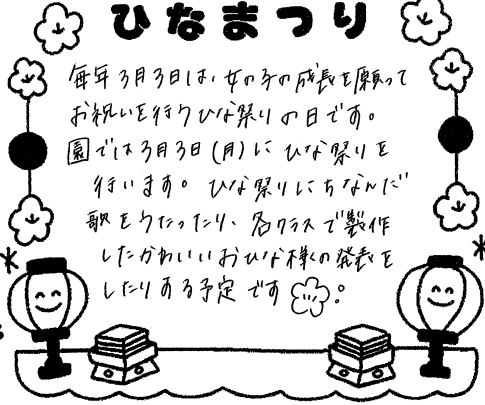 ひなまつり
毎年3月3日は、女の子の成長を願って
お祝いを行うひな祭りの日です。
園では3月3日(月)にひな祭りを
行います。ひな祭りにちなんだ
歌をうたったり、各クラスで製作
したかわいいおひな様の発表を
したりする予定です。